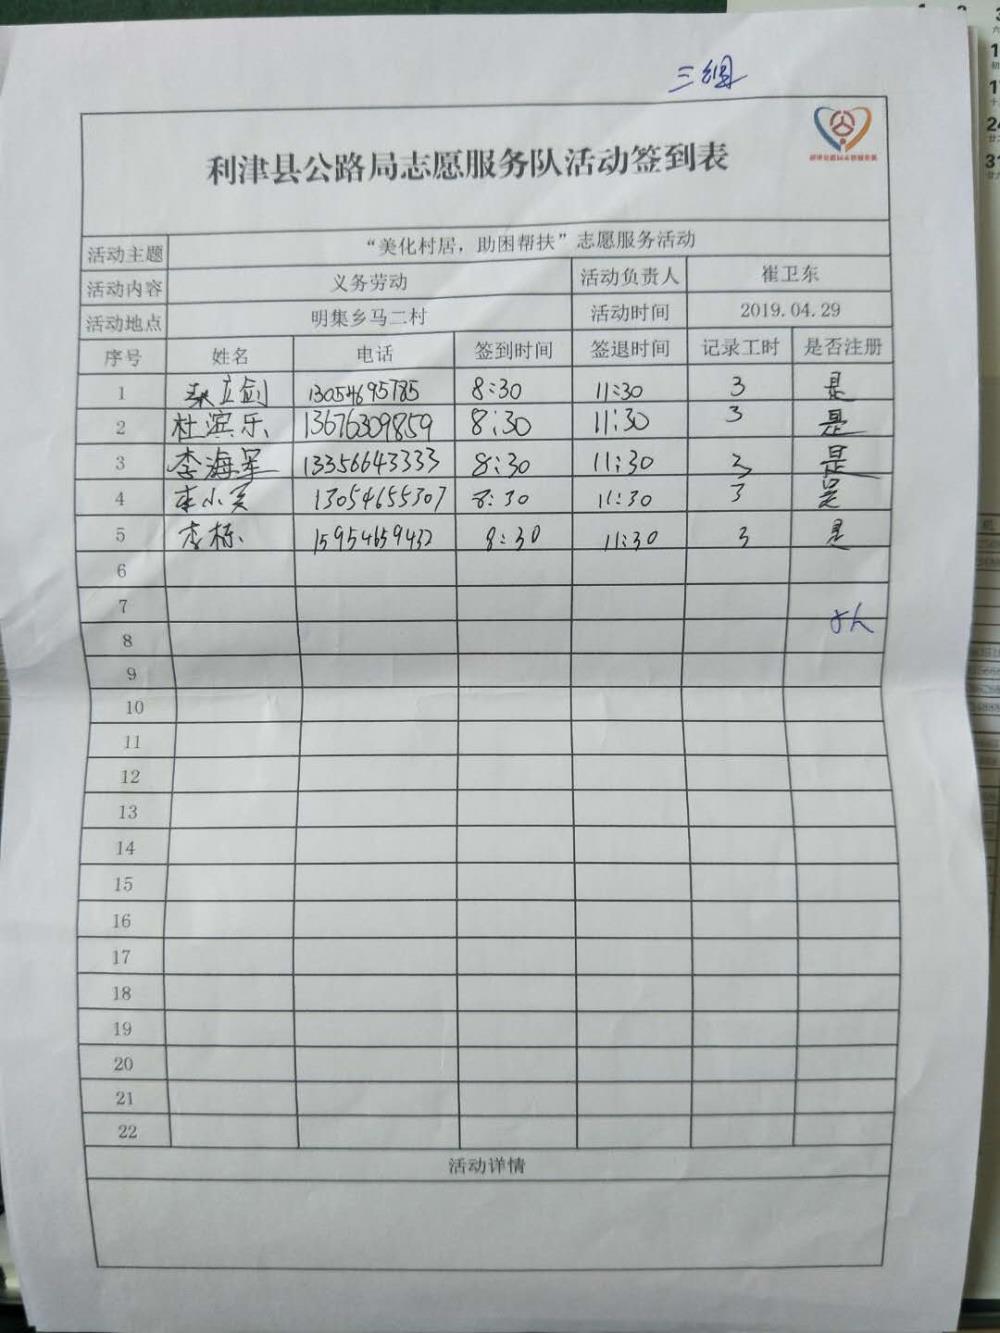 三组
利津县公路局志愿服务队活动签到表
活动主题 “美化村居，助困帮扶”志愿服务活动
活动内容 义务劳动 活动负责人 崔卫东
活动地点 明集乡马二村 活动时间 2019.04.29
序号 姓名 电话 签到时间 签退时间 记录工时 是否注册
1 立剑 13054695785 8:30 11:30 3 是
2 杜滨乐 13676309859 8:30 11:30 3 是
3 李海军 13356643333 8:30 11:30 3 是
4 李小 13054655307 8:30 11:30 3 是
5 李栋 15954659432 8:30 11:30 3 是
6
7
8
9
10
11
12
13
14
15
16
17
18
19
20
21
22
活动详情